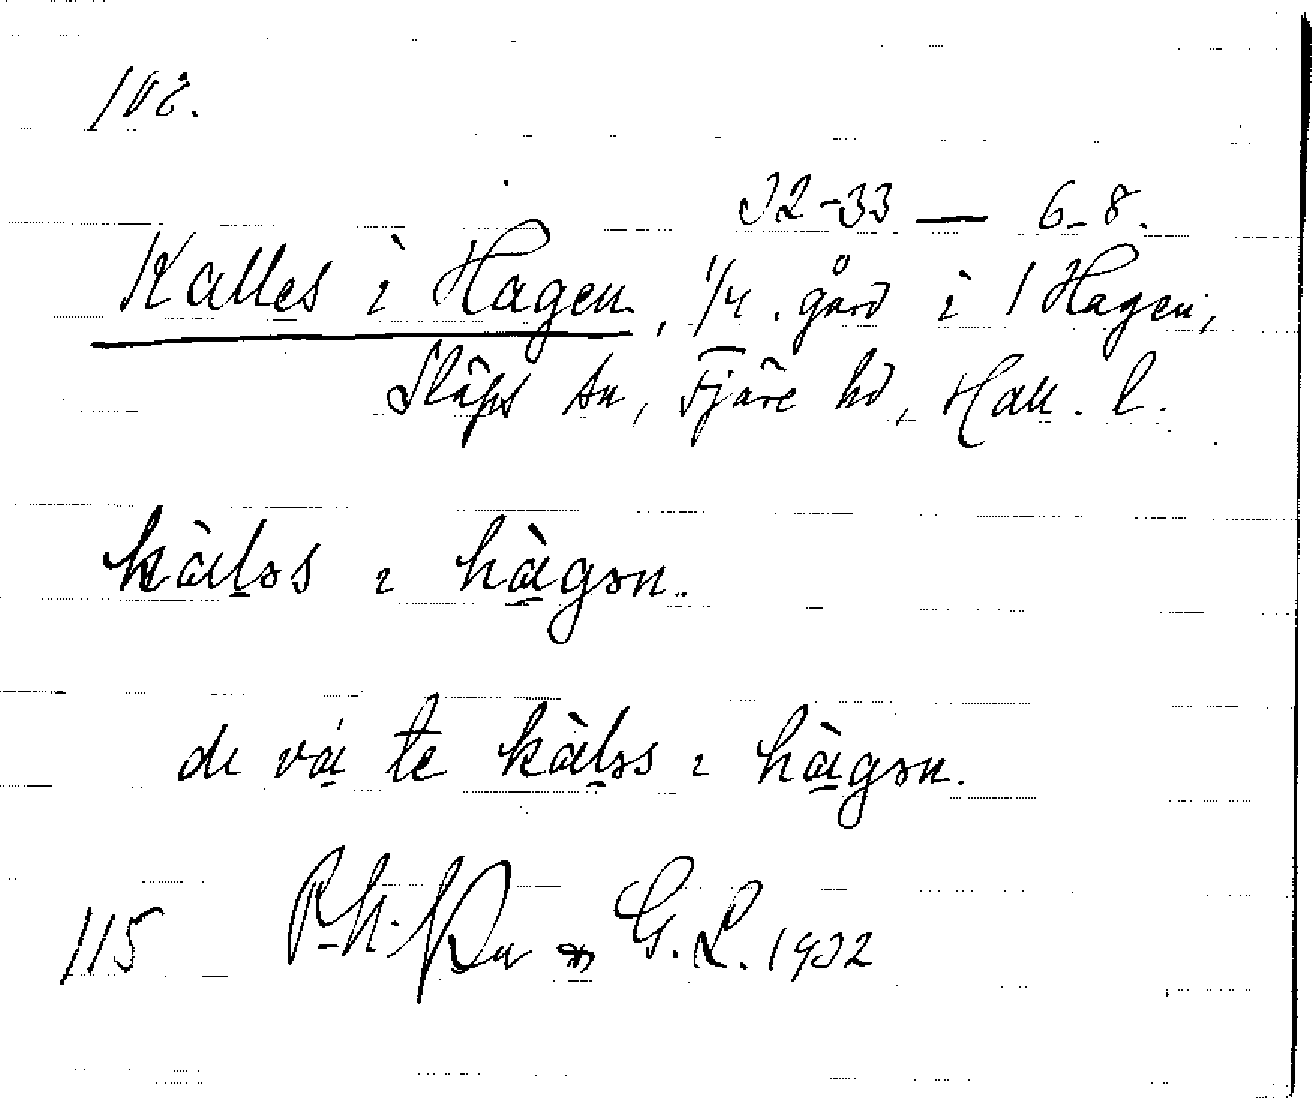 102.
32-33 — 6-8.
Kalles i Hagen, 1/4 gård i 1 Hagen,
Släps sn, Fjäre hd, Hall. l.
kàləs ı hàgən.
de vá te kàləs ı hàgən.
115 G. L. 1932